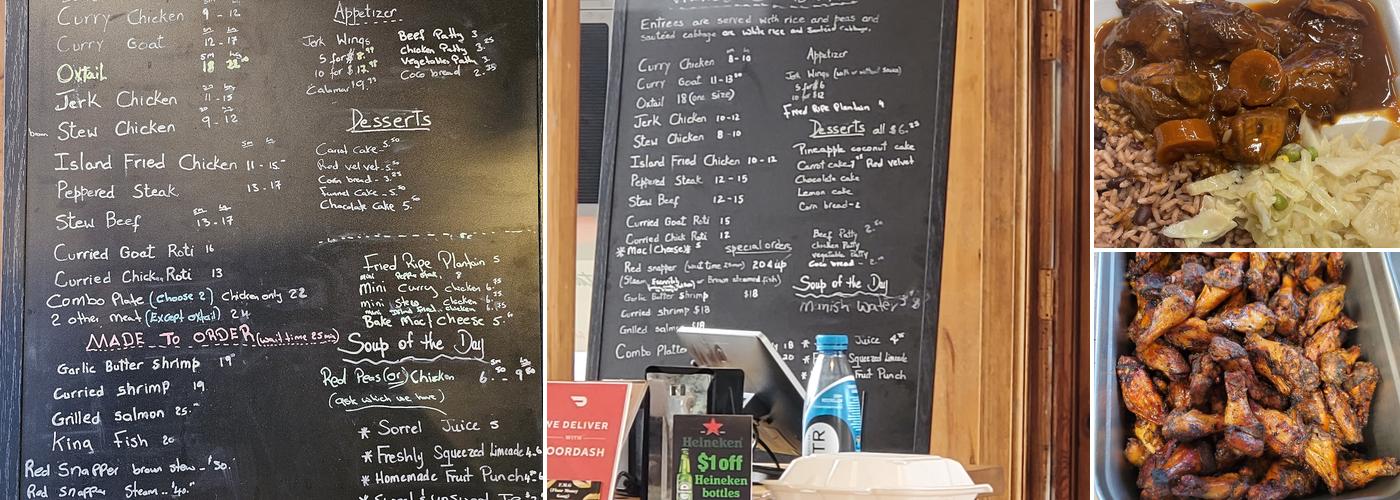 Curry Chicken 9 - 12
Curry Goat 12 - 17
sm
Oxtail 18
Jerk Chicken 11 - 15
Stew Chicken 9 - 12
brown
sm
Island Fried Chicken 11 - 15
Peppered Steak 13 - 17
sm
Stew Beef 13 - 17
Curried Goat Roti 16
Curried Chick. Roti 13
Combo Plate (Choose 2) Chicken only 22
2 other meat (Except oxtail) 24
MADE TO ORDER (wait time 25 min)
Garlic Butter Shrimp 19
Curried Shrimp 19
Grilled Salmon 25
King Fish 20
Red Snapper brown stew - $30
Red Snapper Steam - $40
Appetizer
Jerk Wings
5 for $8.99
10 for $
Calamari 9.
Beef Patty 3
Chicken Patty 3
Vegetable Patty 3
Coco bread 2.
Desserts
Carrot Cake 5.50
Red velvet 5.
Corn bread - 3.25
Funnel Cake - 5.50
Chocolate Cake 5.
Fried Ripe Plantain 5
mini Pepper Steak 8
mini Curry chicken 6.
mini stew chicken 6.
mini
Bake Mac/Cheese 5.
Soup of the Day
Red Peas (or) Chicken 6.50 - 9
(ask which we have)
* Sorrel Juice 5
* Freshly Squeezed Limeade 4.
* Homemade Fruit Punch
*
Entrees are served with rice and peas and
sautéed cabbage or white rice and sautéed cabbage.
Curry Chicken 8 - 10
Curry Goat 11 - 13
Oxtail 18 (one size)
Jerk Chicken 10 - 12
Stew Chicken 8 - 10
Island Fried Chicken 10 - 12
Peppered Steak 12 - 15
Stew Beef 12 - 15
Curried Goat Roti 15
Curried Chick Roti 12
*Mac/Cheese* 5
special orders
Red snapper (wait time 25min) 20 & up
(Steam or Brown steamed fish)
Garlic Butter Shrimp $18
Curried shrimp $18
Grilled salmon $18
Combo Platter 18
20
Appetizer
Jerk Wings (with or without sauce)
5 for $6
10 for $12
Fried Ripe Plantain 4
Desserts all $6.
Pineapple coconut cake
Carrot cake Red velvet
Chocolate cake
Lemon cake
Corn bread - 2
Beef Patty 2.50
chicken Patty
vegetable Patty
Coco bread - 2.
Soup of the Day
Mannish Water
* Juice 4
* Squeezed Limeade
* Fruit Punch
WE DELIVER
WITH
DOORDASH
Heineken
$1 off
Heineken
bottles
TR